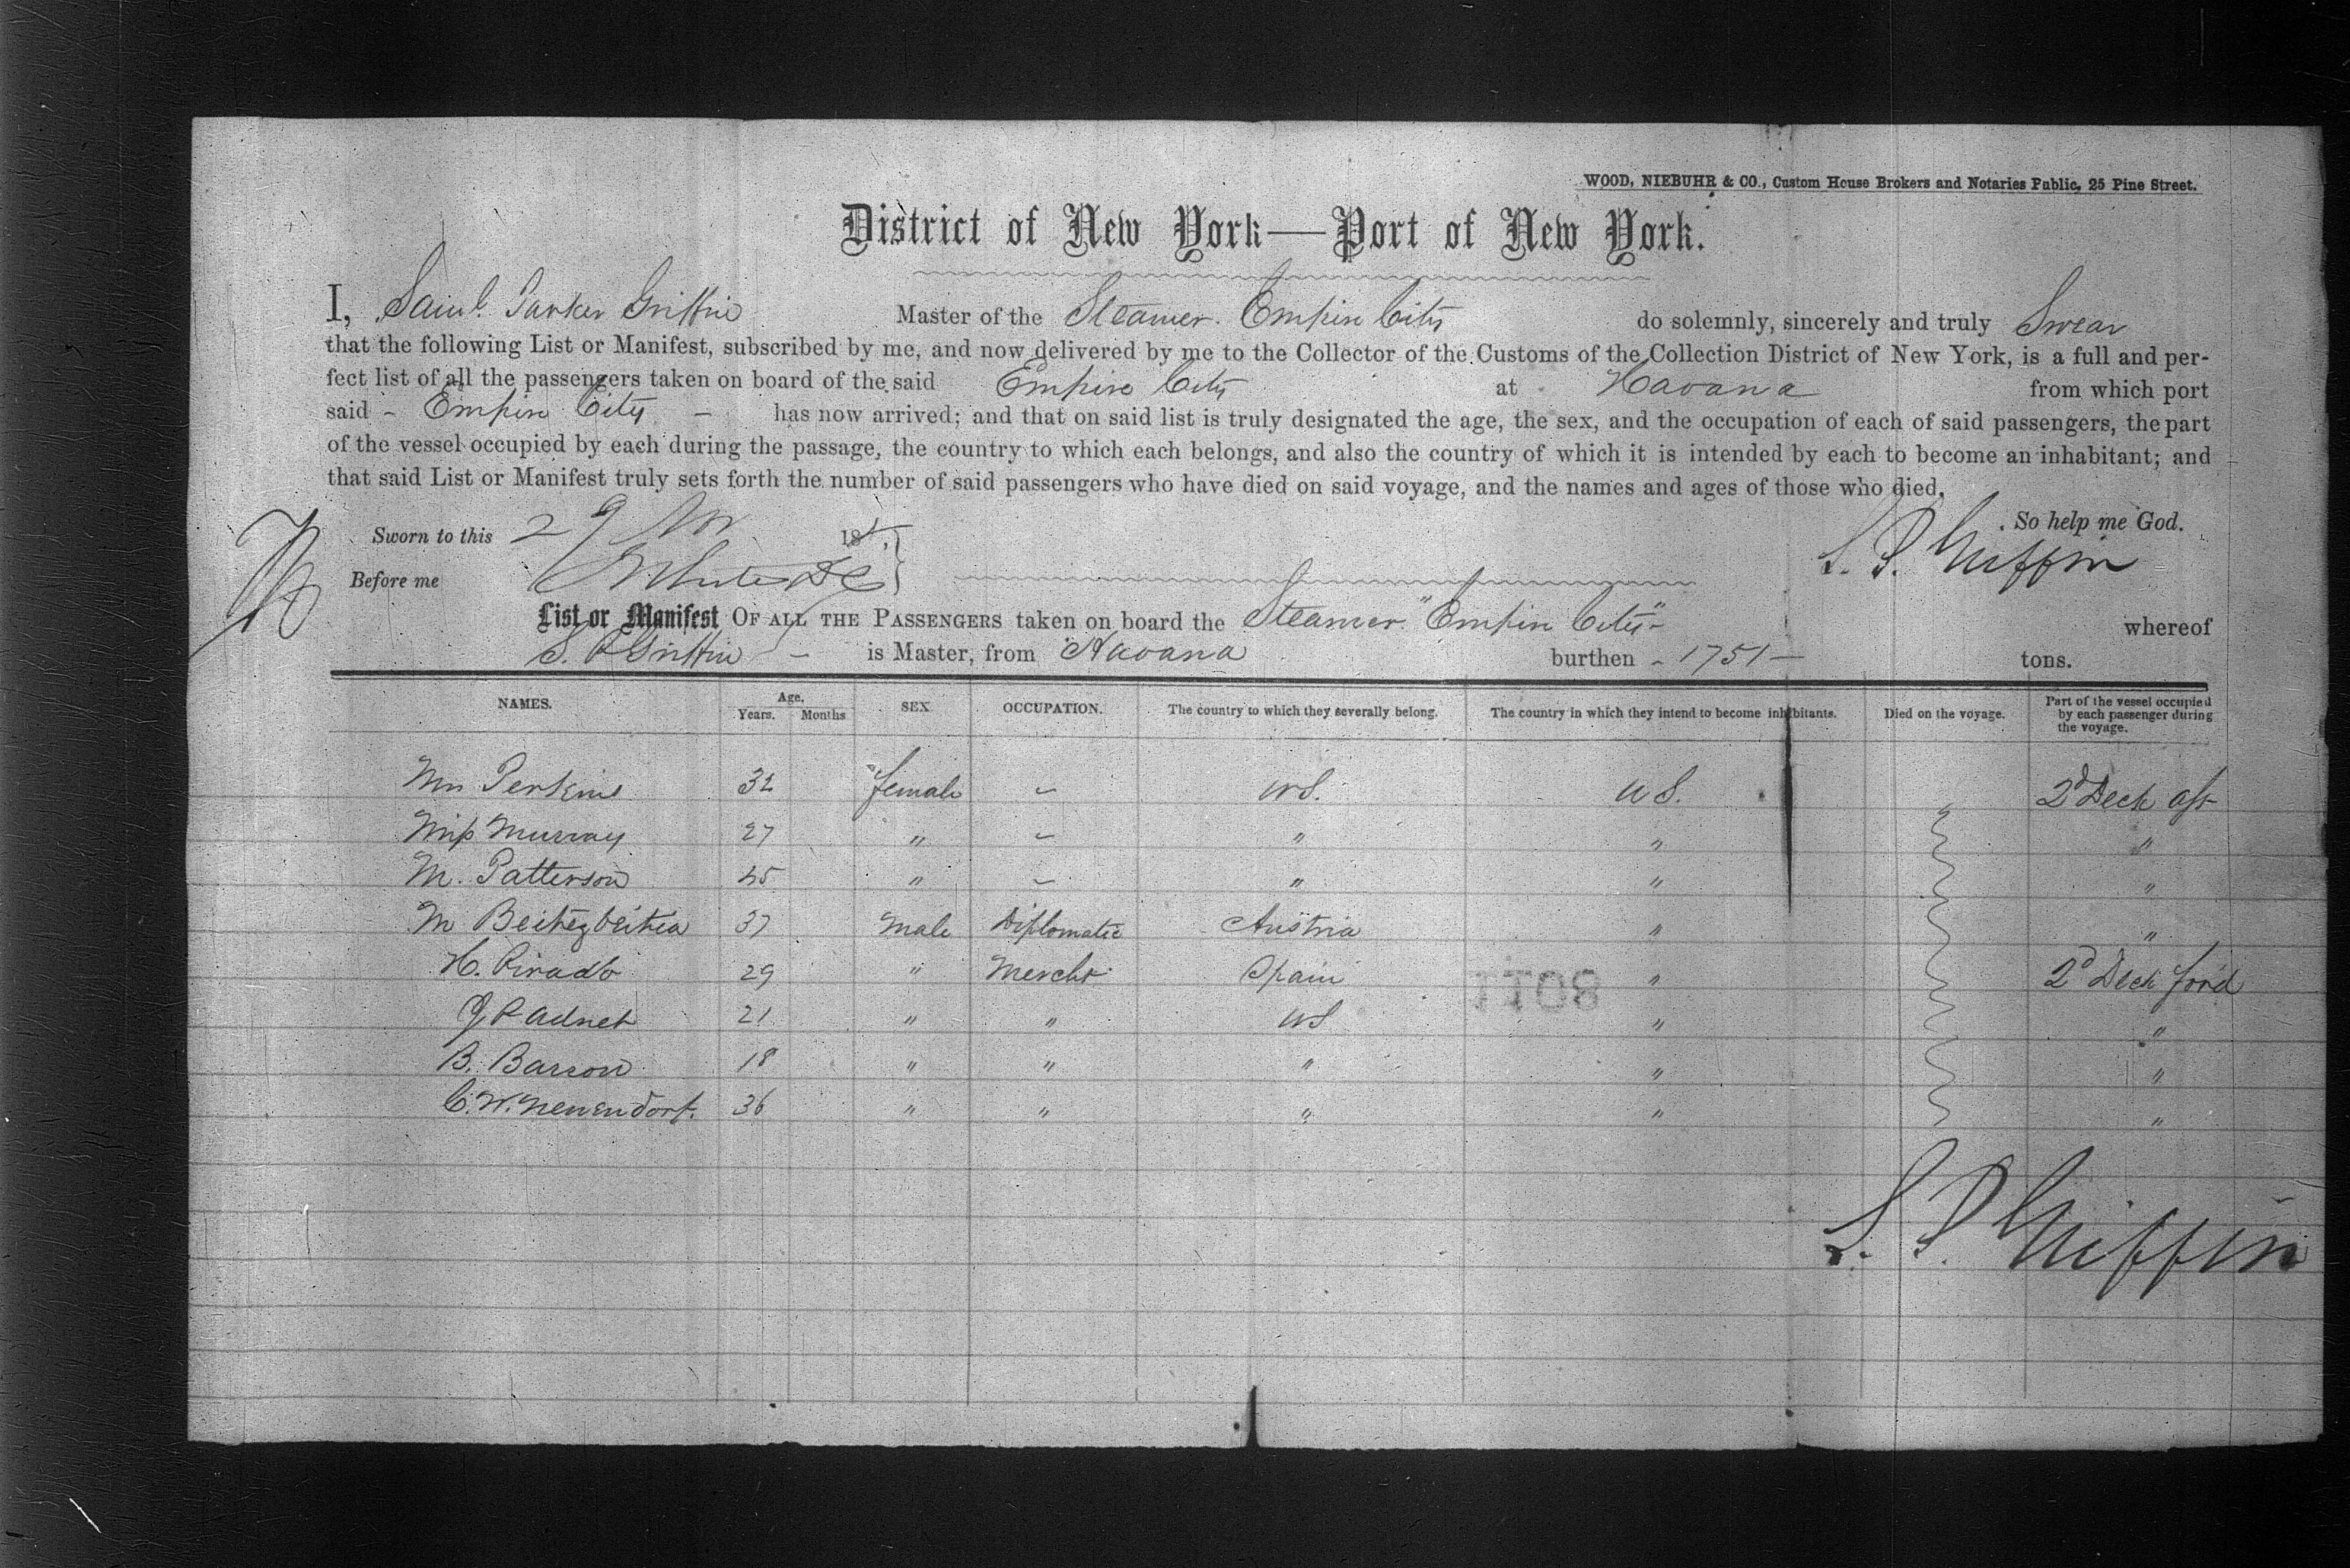 WOOD, NIEBUHR & CO., Custom House Brokers and Notaries Public, 25 Pine Street.
District of New York—Port of New York.
I, Saml. Parker Griffin Master of the Steamer Empire City do solemnly, sincerely and truly Swear
that the following List or Manifest, subscribed by me, and now delivered by me to the Collector of the Customs of the Collection District of New York, is a full and per-
fect list of all the passengers taken on board of the said Empire City at Havana from which port
said - Empire City - has now arrived; and that on said list is truly designated the age, the sex, and the occupation of each of said passengers, the part
of the vessel occupied by each during the passage, the country to which each belongs, and also the country of which it is intended by each to become an inhabitant; and
that said List or Manifest truly sets forth the number of said passengers who have died on said voyage, and the names and ages of those who died.
So help me God.
Sworn to this 29 Nov 18
S. P. Griffin
Before me
List or Manifest OF ALL THE PASSENGERS taken on board the Steamer "Empire City" whereof
S. P. Griffin - is Master, from Havana burthen - 1751 - tons.
NAMES. Age. Years. Months SEX. OCCUPATION. The country to which they severally belong. The country in which they intend to become inhabitants. Died on the voyage. Part of the vessel occupied by each passenger during the voyage.
Mrs Perkins 32 female - US. US. 2d Deck aft
Miss Murray 27 " - " " "
M. Patterson 45 " - " " "
M 37 Male Diplomatic Austria " "
H. 29 " Mercht Spain " 2d Deck for'd
21 " " US " "
B. Barron 18 " " " " "
C. W. Neuendorf. 36 " " " " "
1108
S. P. Griffin